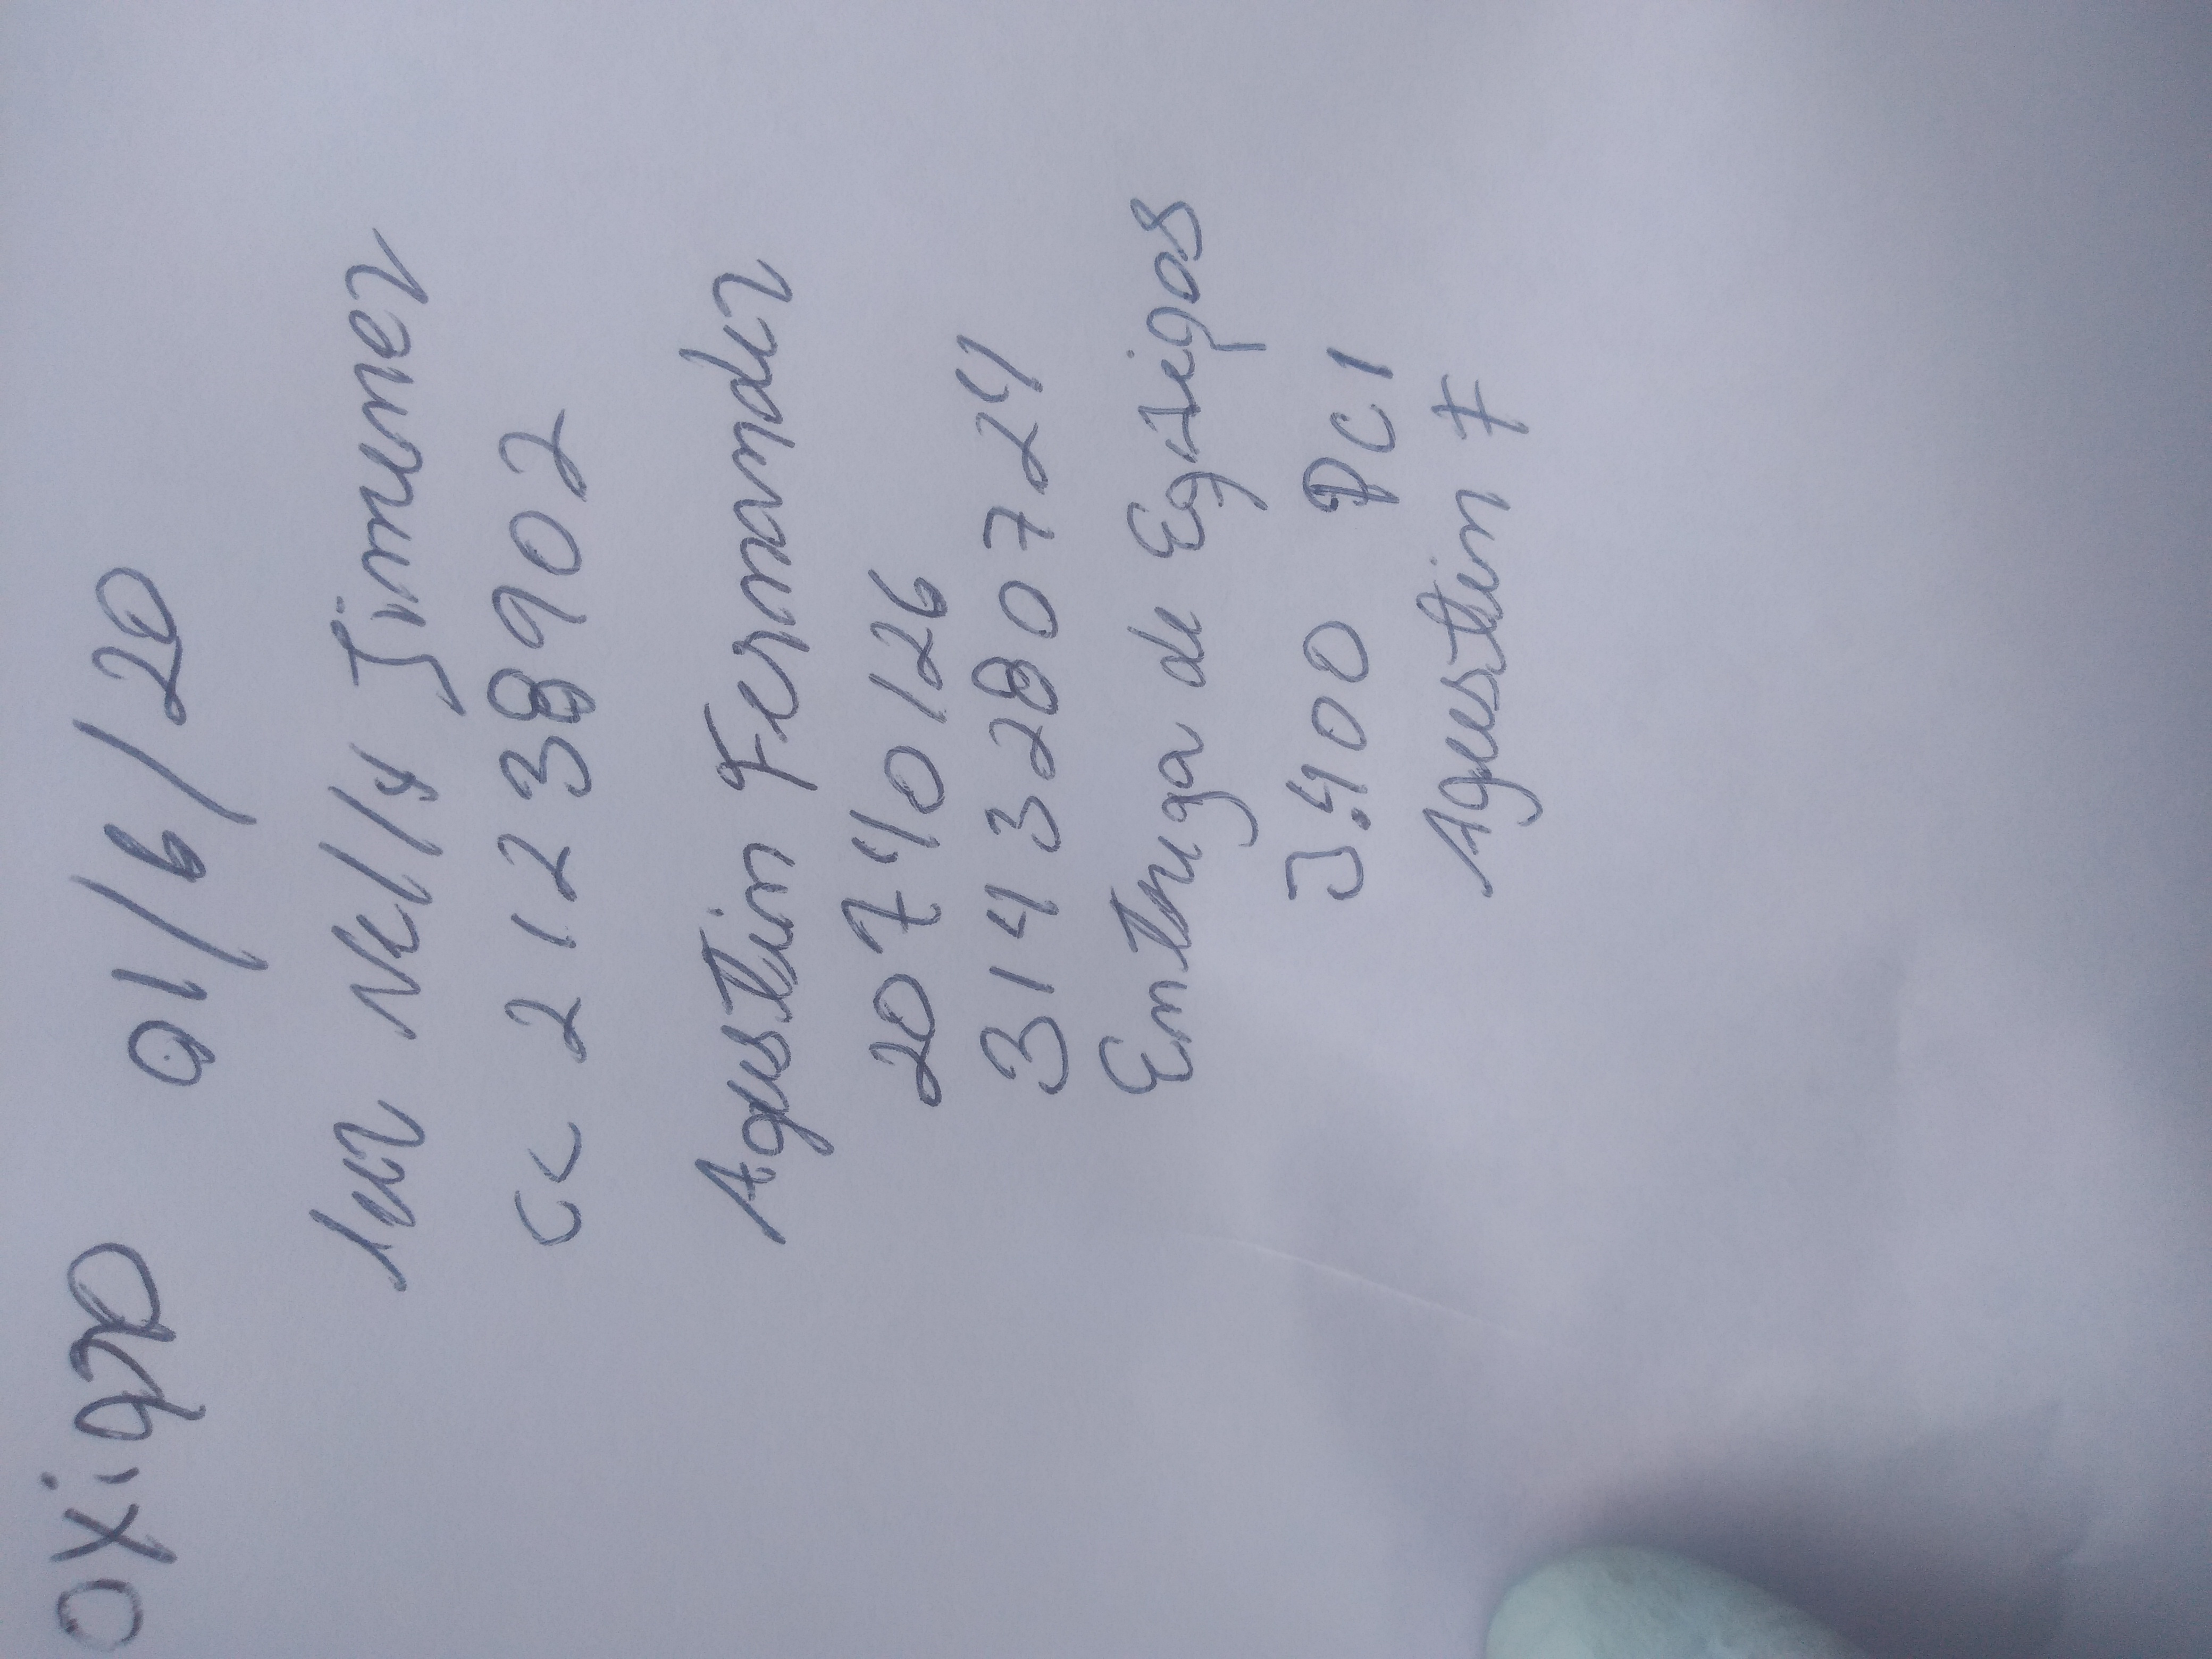 oxigo 01/6/20
luz Nelly Jimenez
CC 21238902
Agustin Fernandez
20740126
3143280724
Entrega de Egsigos
3:400 PCI
Agustin F